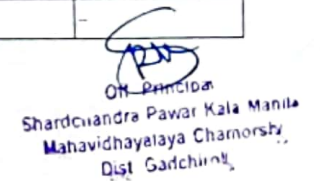 Off Principal
Shardchandra Pawar Kala Manila
Mahavidhayalaya Chamorshy
Dist Gadchiroli